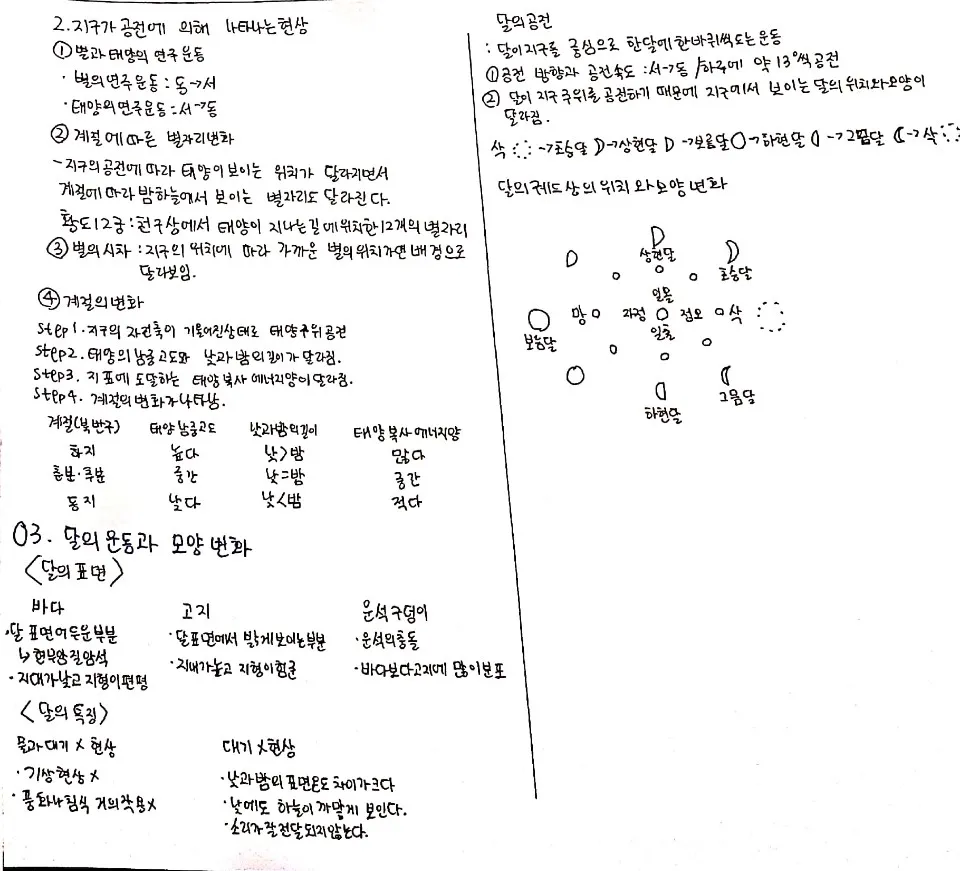 2. 지구가 공전에 의해 나타나는 현상
① 별과 태양의 연주 운동
· 별의 연주운동 : 동→서
· 태양의 연주운동 : 서→동
② 계절에 따른 별자리변화
- 지구의 공전에 따라 태양이 보이는 위치가 달라지면서
계절에 따라 밤하늘에서 보이는 별자리도 달라진다.
황도12궁 : 천구상에서 태양이 지나는 길에 위치한 12개의 별자리
③ 별의 시차 : 지구의 위치에 따라 가까운 별의 위치가 먼 배경으로
달라보임.
④ 계절의 변화
Step 1. 지구의 자전축이 기울어진상태로 태양주위 공전
Step2. 태양의 남중고도와 낮과 밤의 길이가 달라짐.
Step3. 지표에 도달하는 태양 복사 에너지양이 달라짐.
Step4. 계절의 변화가 나타남.
계절(북반구) 태양 남중고도 낮과밤의길이 태양 복사 에너지양
하지 높다 낮>밤 많다
춘분·추분 중간 낮=밤 중간
동지 낮다 낮<밤 적다
03. 달의 운동과 모양 변화
<달의 표면>
바다 고지 운석 구덩이
· 달 표면 어두운 부분 · 달 표면에서 밝게 보이는 부분 · 운석의 충돌
↳ 현무암질 암석
· 지대가 낮고 지형이 편평 · 지대가 높고 지형이 험준 · 바다보다 고지에 많이 분포
<달의 특징>
물과 대기 X 현상 대기 X 현상
· 기상현상 X · 낮과 밤의 표면온도 차이가 크다
· 풍화나 침식 거의 작용 X · 낮에도 하늘이 까맣게 보인다.
· 소리가 잘 전달되지 않는다.
달의 공전
: 달이 지구를 중심으로 한달에 한바퀴씩 도는 운동
① 공전 방향과 공전속도 : 서→동 / 하루에 약 13°씩 공전
② 달이 지구 주위를 공전하기 때문에 지구에서 보이는 달의 위치와 모양이
달라짐.
삭 → 초승달 → 상현달 → 보름달 → 하현달 → 그믐달 → 삭
달의 궤도상의 위치와 모양 변화
상현달 초승달
일몰
보름달 망 자정 정오 삭
일출
하현달 그믐달